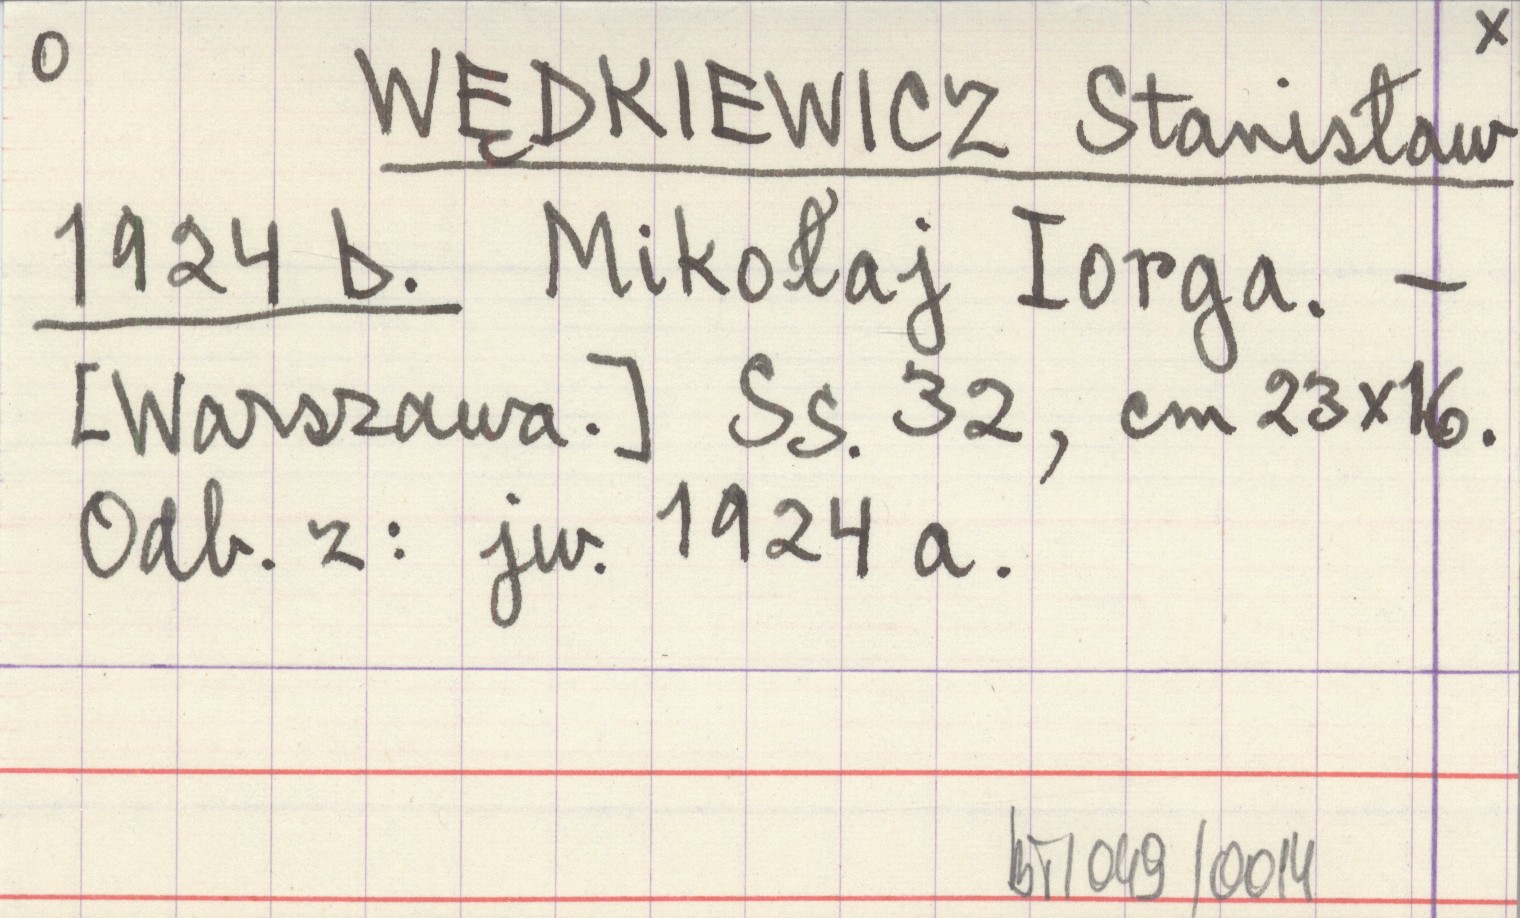 O x
WĘDKIEWICZ Stanisław
1924 b. Mikołaj Iorga. –
[Warszawa.] Ss. 32, cm 23x16.
Odb. z: jw. 1924 a.
049/0014